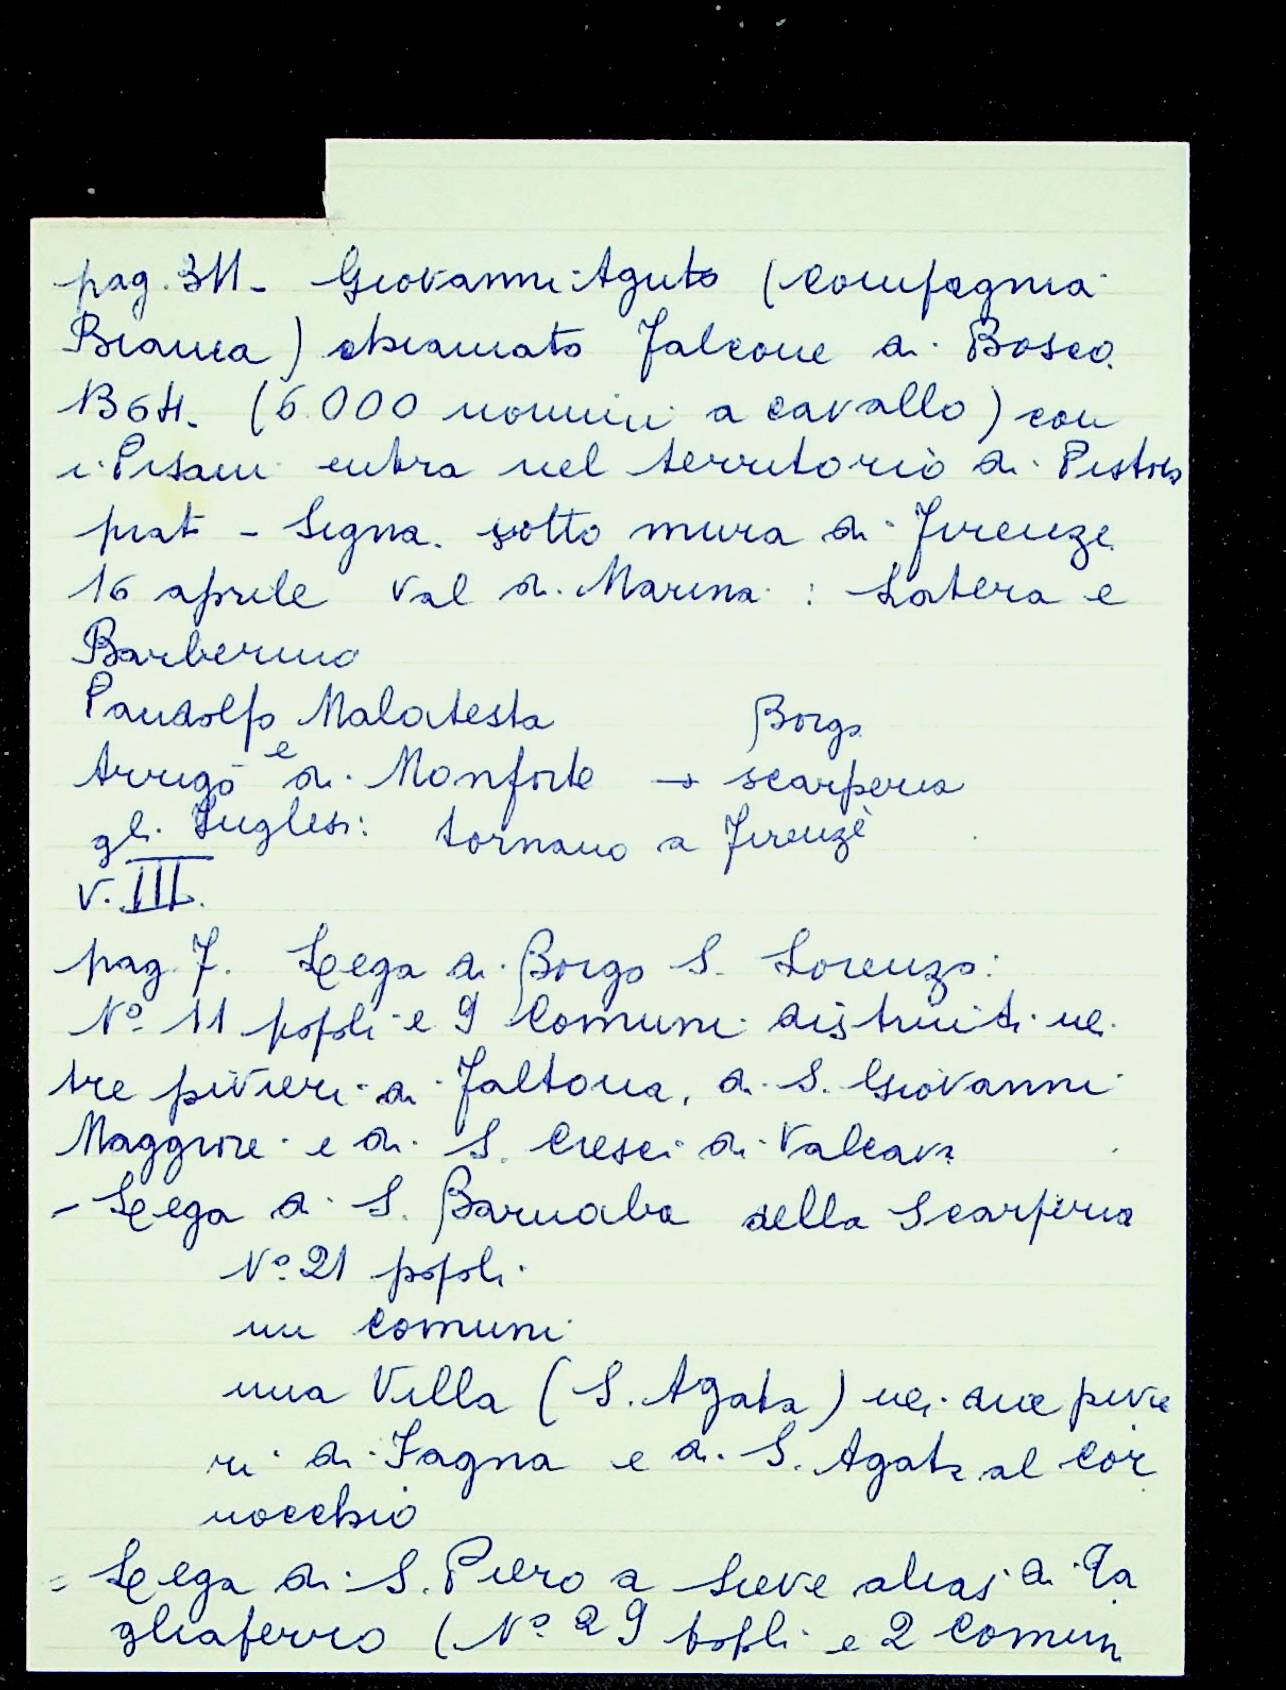 pag. 311- Giovanni Aguto (Compagnia
Bianca) chiamato Falcone di Bosco.
1364. (6.000 uomini a cavallo) con
i Pisani entra nel territorio di Pistoia
prat - Signa. sotto mura di Firenze
16 aprile Val di Marina : Latera e
Barberino
Pandolfo Malatesta Borgo
Arrigo e di Monforte → scarperia
gli Inglesi: tornano a Firenze
V. III.
pag. 7. Lega di Borgo S. Lorenzo:
N° 11 popoli e 9 Comuni distruiti nei
tre pivieri di Faltona, di S. Giovanni
Maggiore e di S. Cresci di Valcava
- Lega di S. Barnaba della Scarperia
N° 21 popoli
un comuni
una Villa (S. Agata) nei due pivie
ri di Fagna e di S. Agata al Cor
nocchio
= Lega di S. Piero a Sieve alias di Ta
gliaferro (N° 29 popoli e 2 Comuni